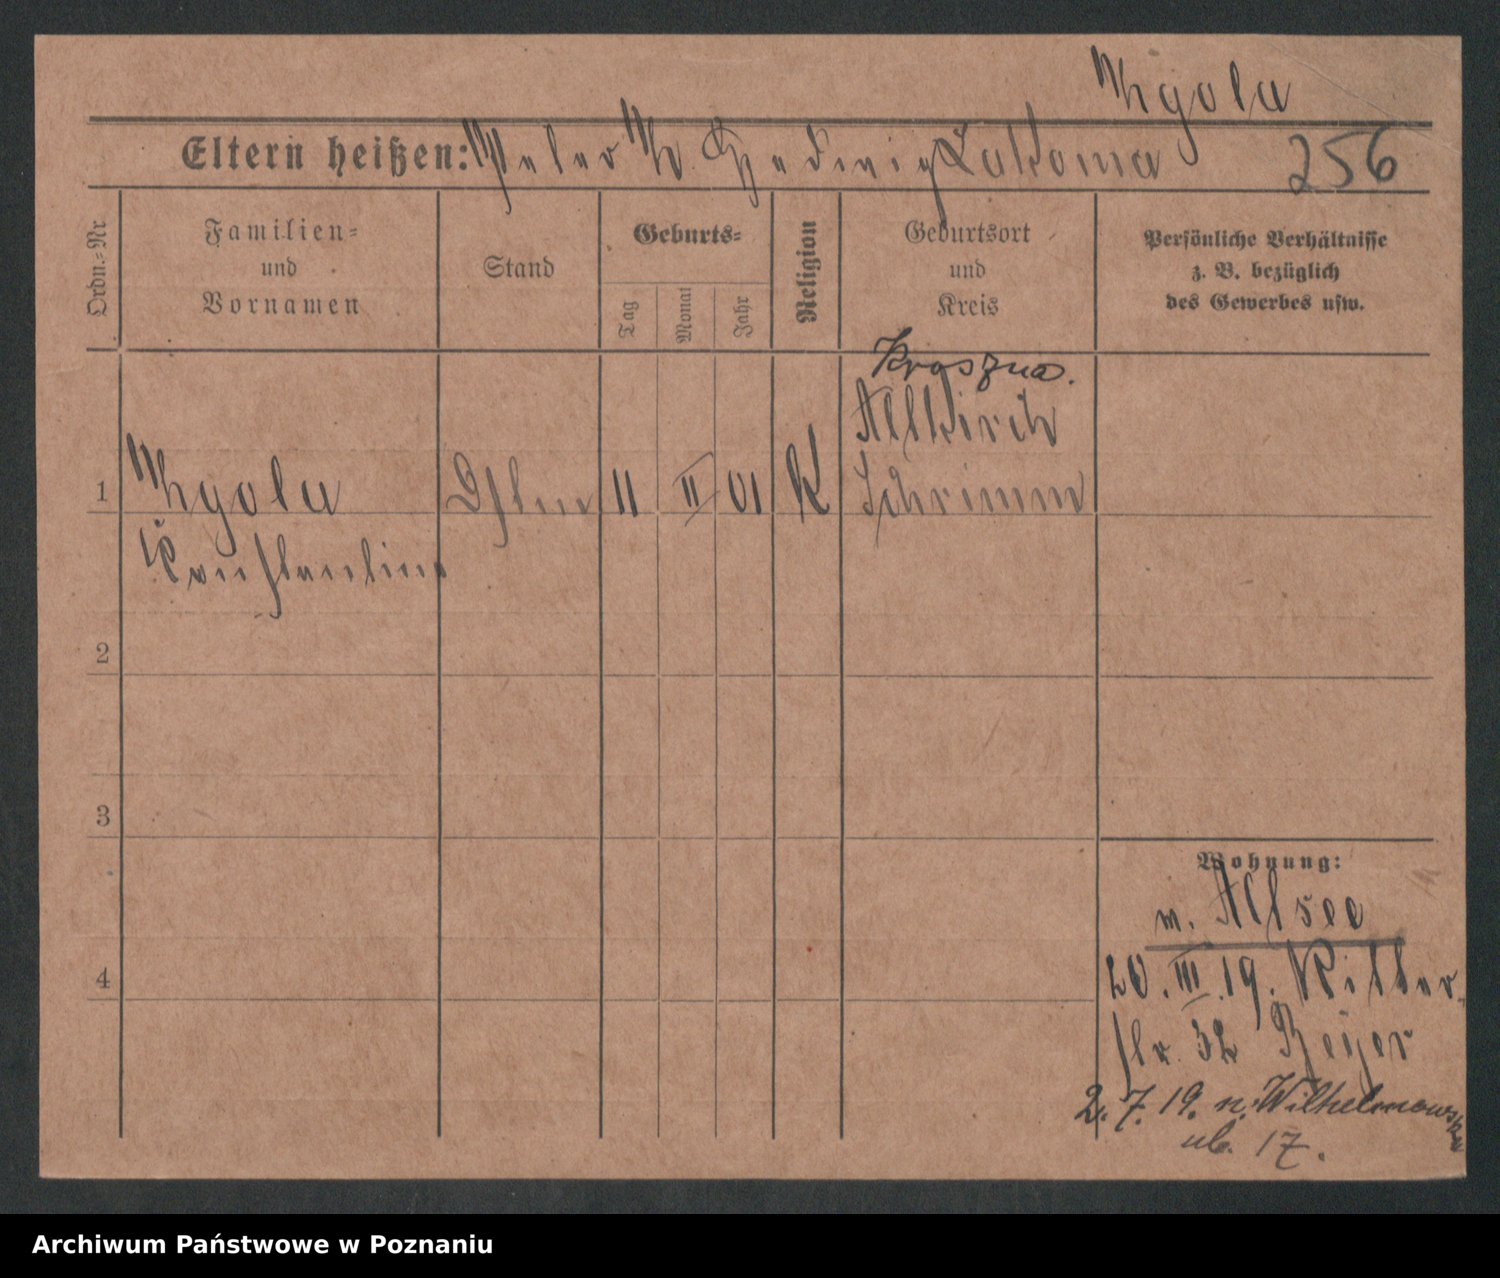 Mgola
Eltern heißen: Peter M. Hedwig Lakoma 256
Ordn.=Nr
Familien=
und
Vornamen
Stand
Geburts=
Tag
Monat
Jahr
Religion
Geburtsort
und
Kreis
Persönliche Verhältnisse
z. B. bezüglich
des Gewerbes usw.
Kroszna.
Altkirch
1 Mgola 11 II 01 K Schrimm
Konstantina
2
3
Wohnung:
n. Altsee
4
20. III. 19. Ritter
str. 32 Beyer
2. 7. 19. n. Wilhelmowska
ul. 17.
Archiwum Państwowe w Poznaniu